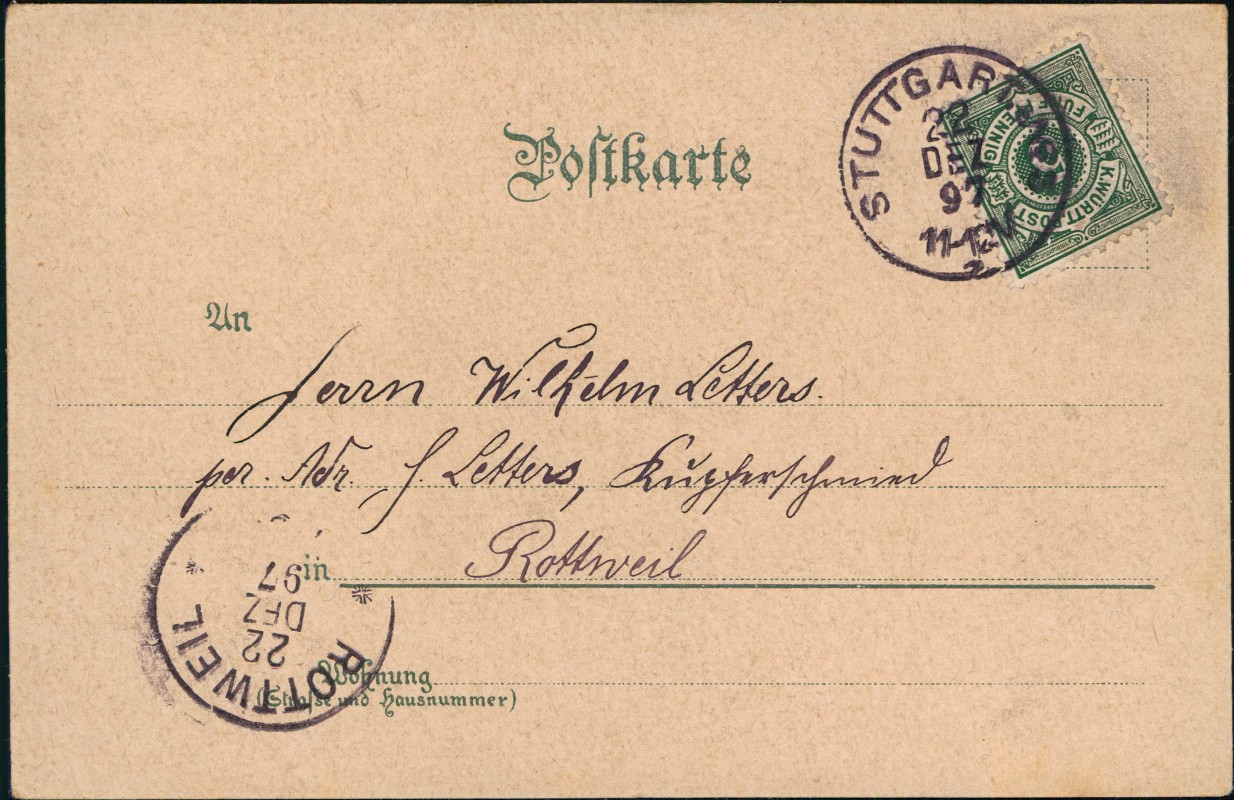 Postkarte
STUTTGART
22
DEZ
97
11-12V
2
FÜNF PFENNIG
K.WÜRTT.POST
An
Herrn Wilhelm Letters.
per. Adr. J. Letters, Kupferschmied
in Rottweil
ROTTWEIL
22
DEZ
97
Wohnung
(Straße und Hausnummer)